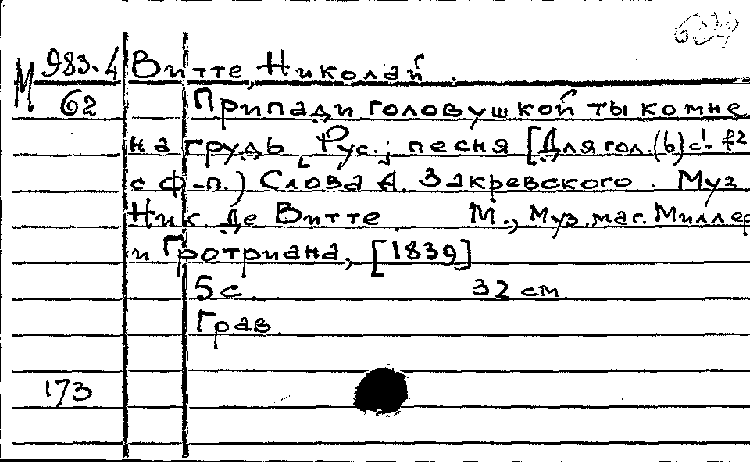 М 983-4 Витте, Николай.
62 Припади головушкой ты ко мне
на грудь, Рус. песня [Для гол. (b) c¹-f2
с ф-п.) Слова А. Закревского. Муз.
Ник. де Витте. М., Муз. маг. Миллер
и Гротриана, [1839]
5 с. 32 см
Грав.
173